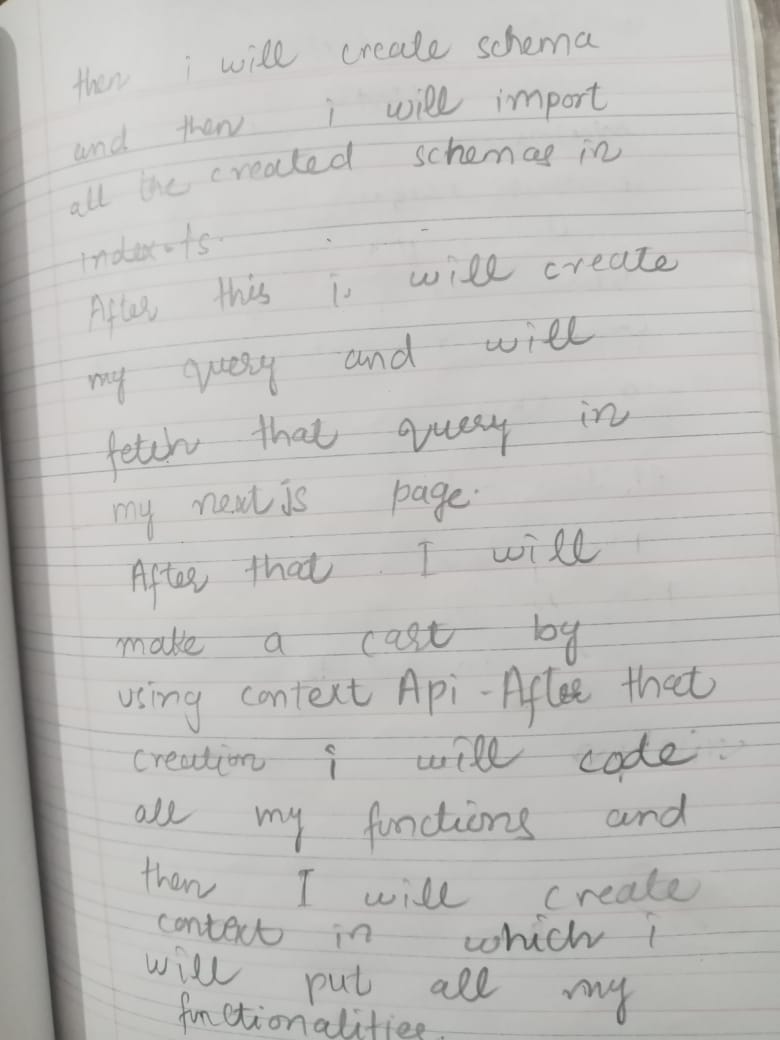 then i will create schema
and then i will import
all the created schemas in
index.ts.
After this i will create
my query and will
fetch that query in
my next js page.
After that I will
make a cart by
using context Api - After that
creation i will code
all my functions and
then I will create
context in which i
will put all my
functionalities.